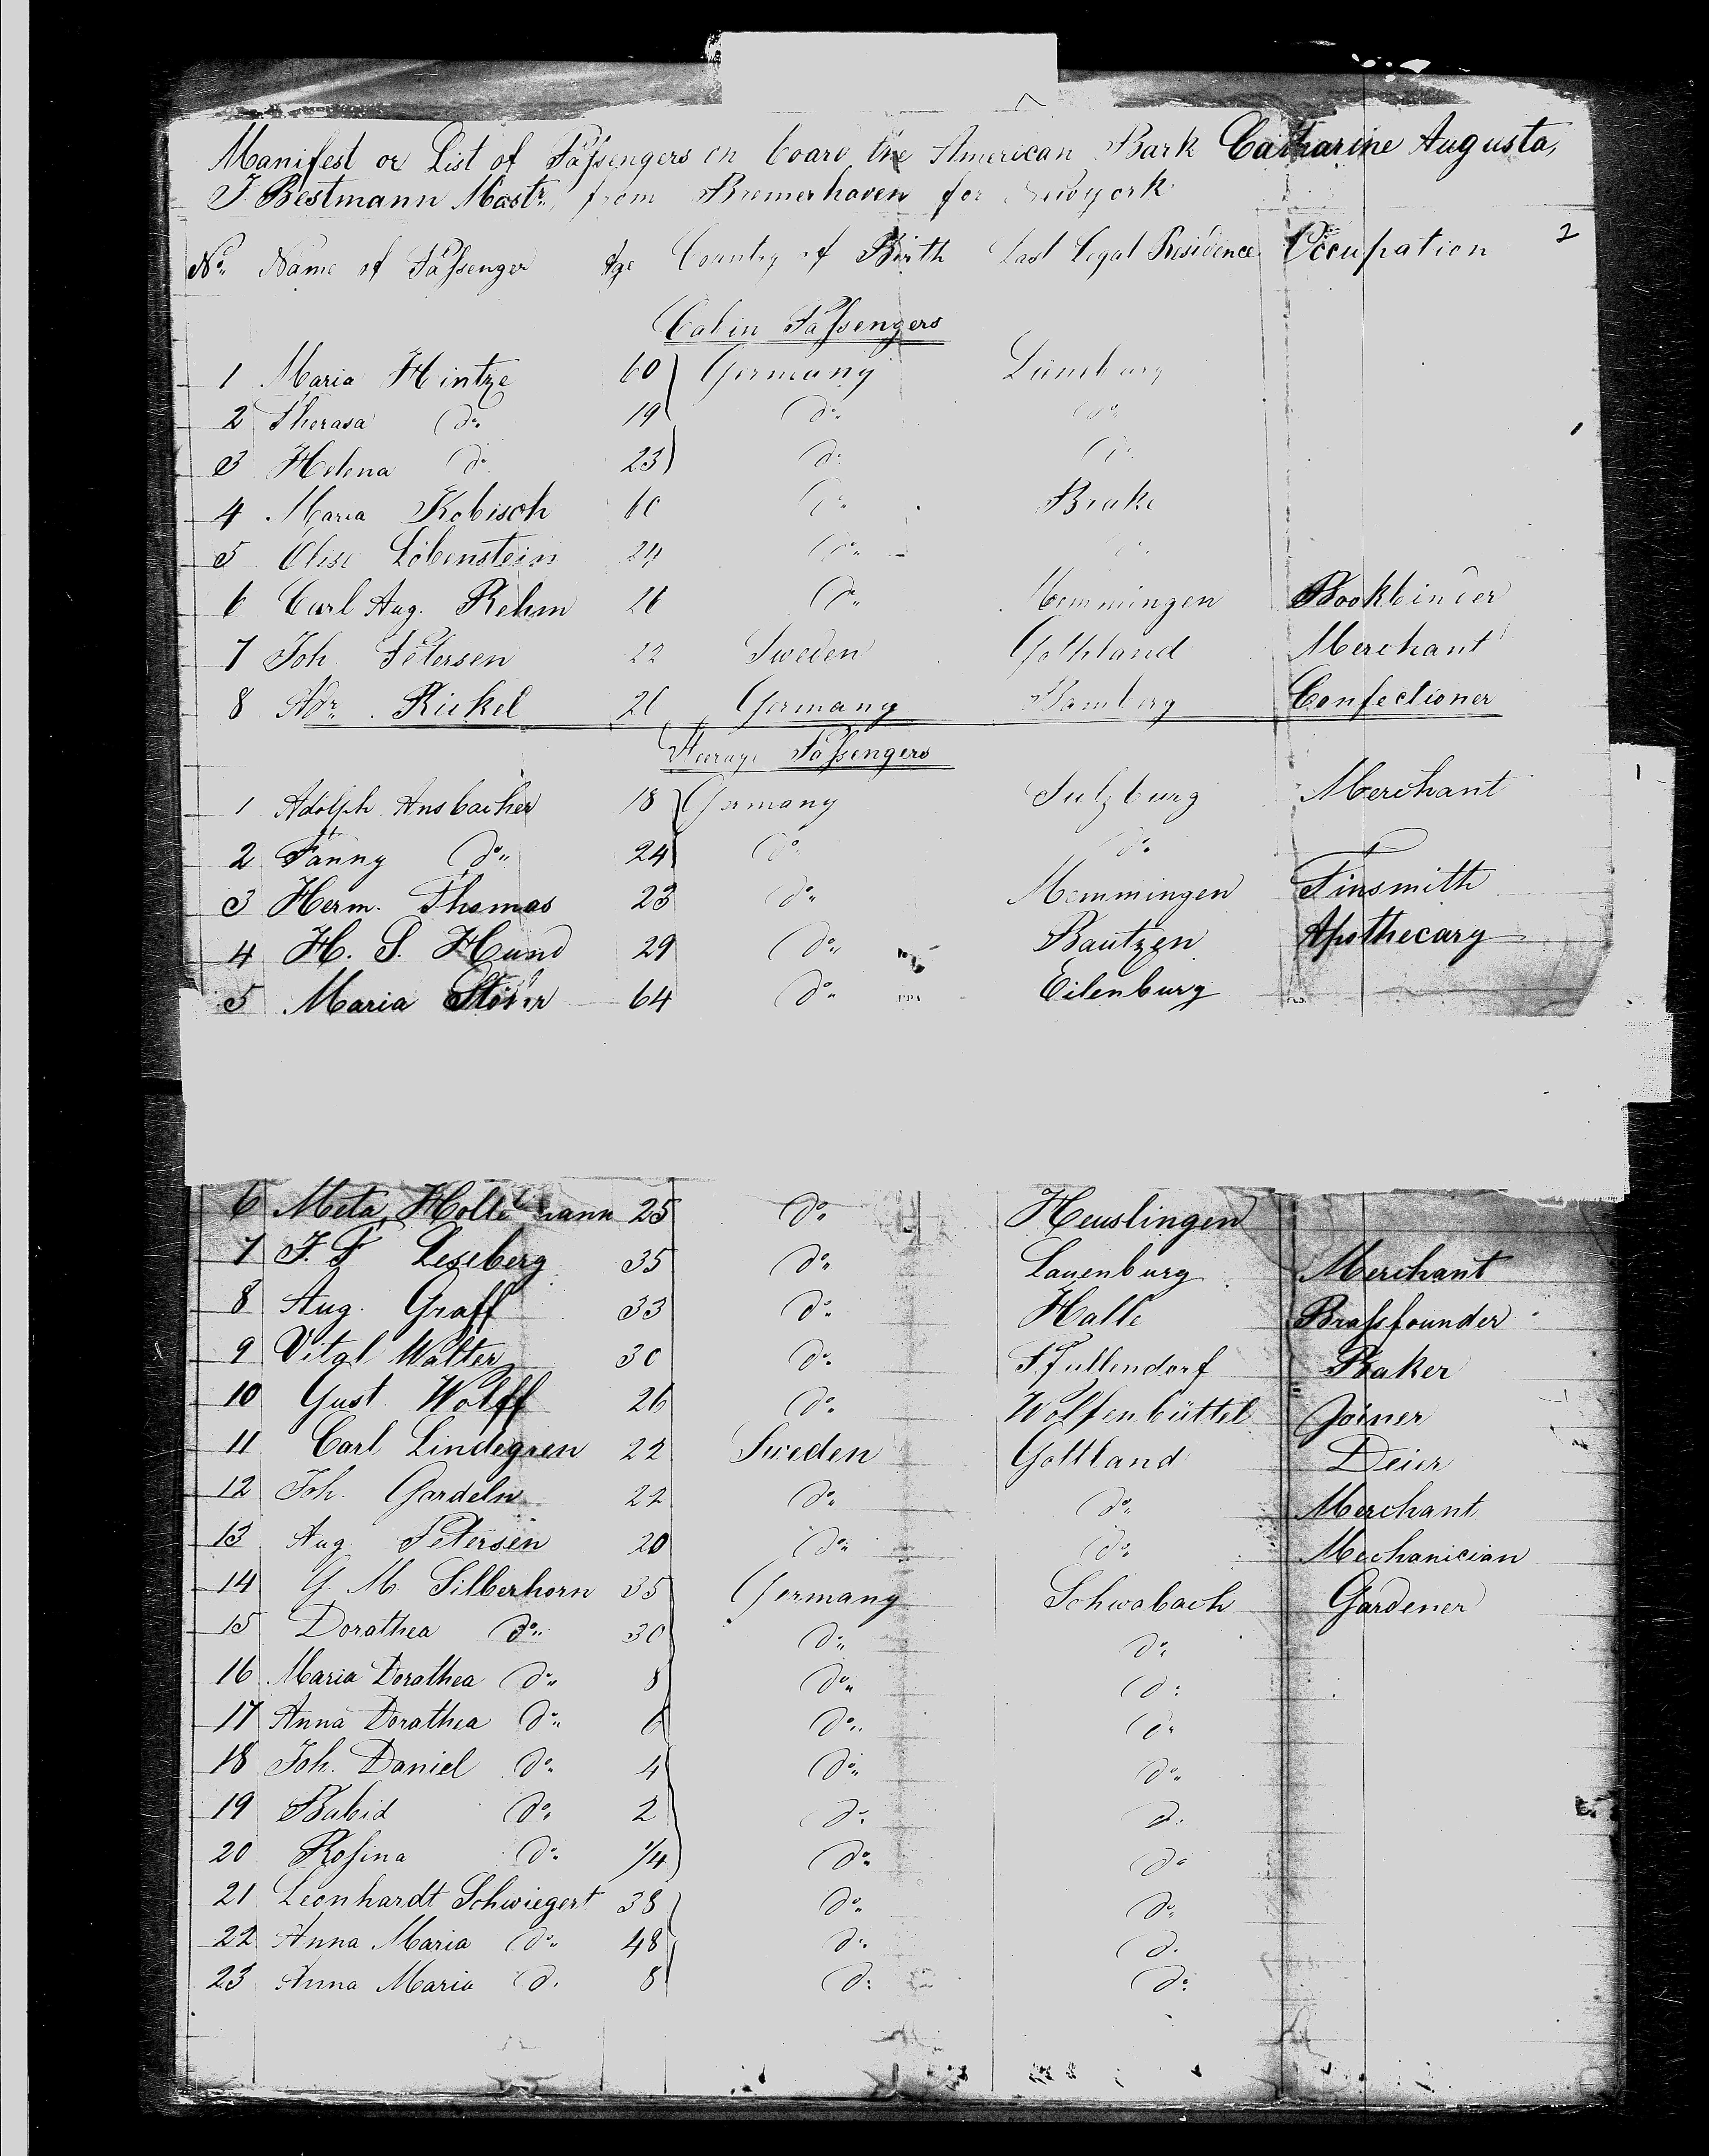 Manifest or List of Passengers on board the American Bark Catharine Augusta,
J. Bestmann Mastr. from Bremerhaven for Newyork
2
No. Name of Passenger Age Country of Birth Last Legal Residence Occupation
Cabin Passengers
1 Maria Hintze 60 Germany Lüneburg
2 Therasa do. 19 do. do.
3 Helena do. 23 do. do.
4 Maria Kobisch 60 do. Brake
5 Elise Löbenstein 24 do. do.
6 Carl Aug. Rehm 26 do. Memmingen Bookbinder
7 Joh. Petersen 22 Sweden Gothland Merchant
8 Rickel 26 Germany Bamberg Confectioner
Steerage Passengers
1 Adolph Ansbacher 18 Germany Sulzburg Merchant
2 Fanny do. 24 do. do.
3 Herm. Thomas 23 do. Memmingen Tinsmith
4 H. S. Hund 29 do. Bautzen Apothecary
5 Maria 64 do. Eilenburg
6 Meta 25 do. Heuslingen
7 J. F. Leseberg 35 do. Lauenburg Merchant
8 Aug. Graff 33 do. Halle Brassfounder
9 Vital Walter 30 do. Pfullendorf Baker
10 Gust. Wolff 26 do. Wolfenbüttel Joiner
11 Carl Lindegren 22 Sweden Gottland Deier
12 Joh. Gardeln 22 do. do. Merchant
13 Aug. Petersen 20 do. do. Mechanician
14 G. M. Silberhorn 35 Germany Schwabach Gardener
15 Dorathea do. 30 do. do.
16 Maria Dorathea do. 8 do. do.
17 Anna Dorathea do. 6 do. do.
18 Joh. Daniel do. 4 do. do.
19 Babid do. 2 do. do.
20 Rosina do. 1/4 do. do.
21 Leonhardt Schwiegert 38 do. do.
22 Anna Maria do. 48 do. do.
23 Anna Maria do. 8 do. do.